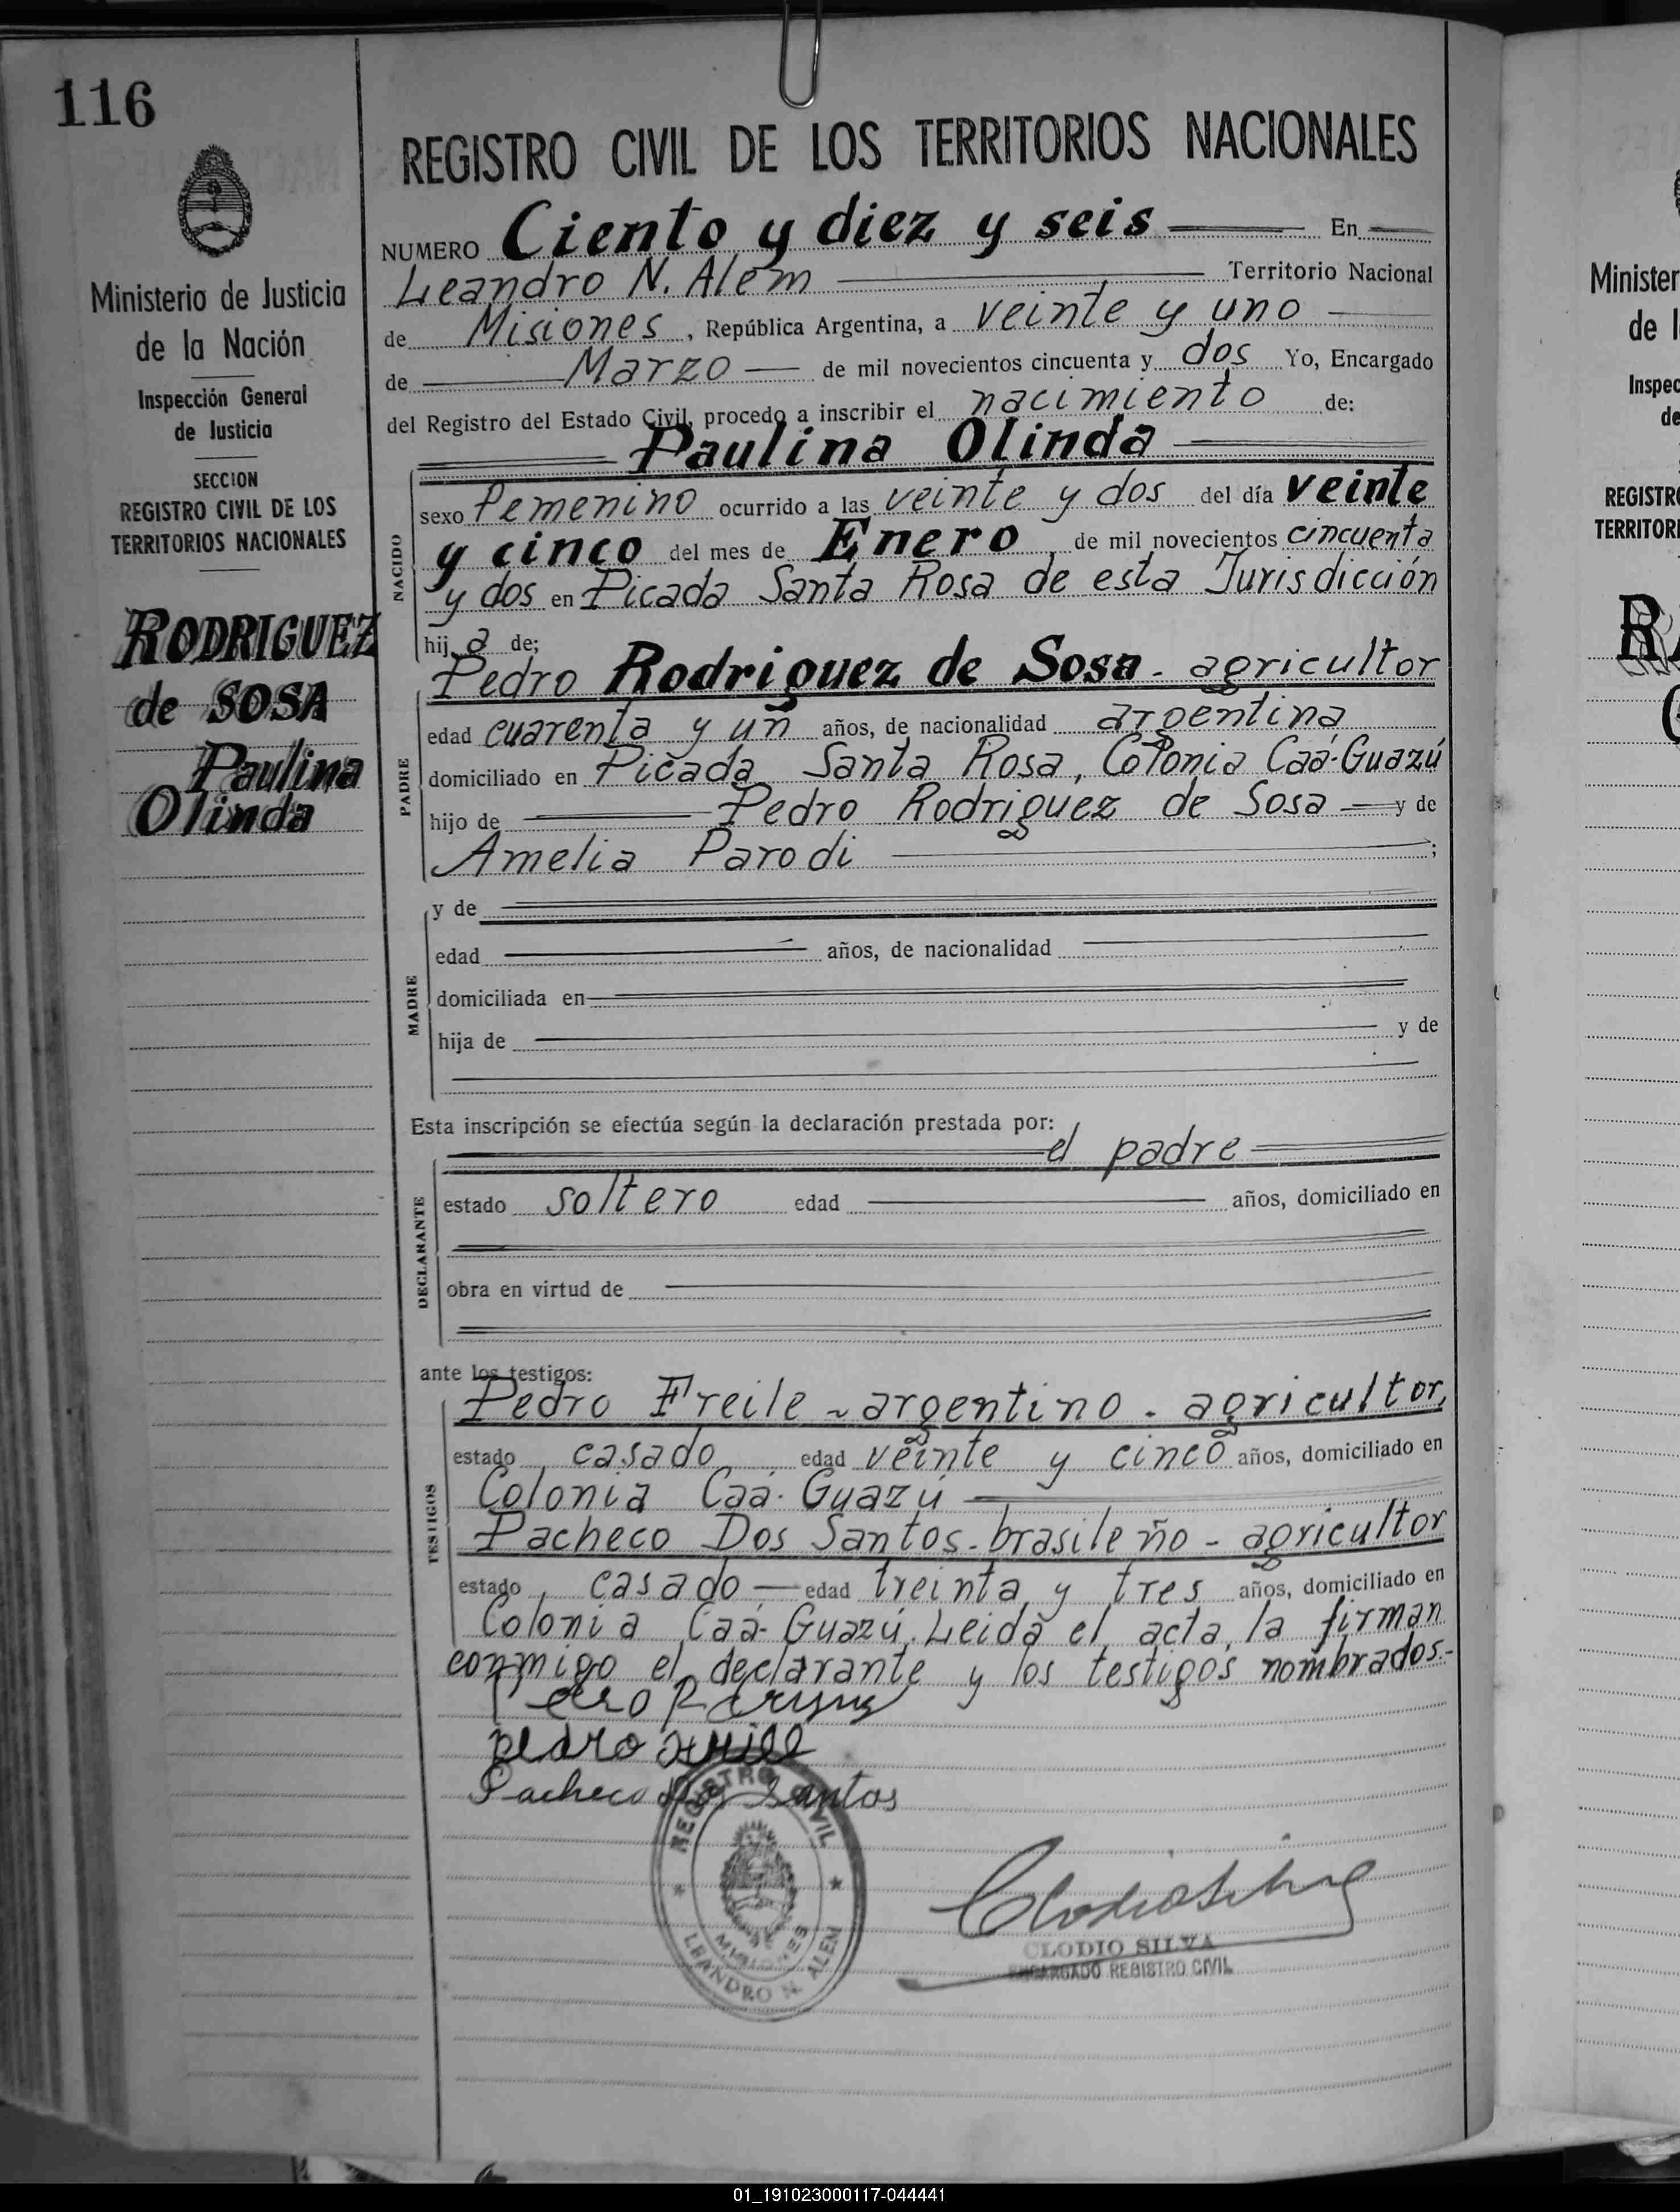 116
REGISTRO CIVIL DE LOS TERRITORIOS NACIONALES
Ministerio de Justicia
de la Nación
Inspección General
de Justicia
SECCION
REGISTRO CIVIL DE LOS
TERRITORIOS NACIONALES
RODRIGUEZ
de SOSA
Paulina
Olinda
NUMERO Ciento y diez y seis En
Leandro N. Alem Territorio Nacional
de Misiones, República Argentina, a veinte y uno
de Marzo de mil novecientos cincuenta y dos Yo, Encargado
del Registro del Estado Civil, procedo a inscribir el nacimiento de:
Paulina Olinda
NACIDO
sexo femenino ocurrido a las veinte y dos del día veinte
y cinco del mes de Enero, de mil novecientos cincuenta
y dos en Picada Santa Rosa de esta Jurisdicción
hija de;
PADRE
Pedro Rodriguez de Sosa - agricultor
edad cuarenta y un años, de nacionalidad argentina
domiciliado en Picada Santa Rosa, Colonia Caá-Guazú
hijo de Pedro Rodriguez de Sosa y de
Amelia Parodi ;
MADRE
y de
edad años, de nacionalidad
domiciliada en
hija de y de
Esta inscripción se efectúa según la declaración prestada por:
DECLARANTE
el padre
estado soltero edad años, domiciliado en
obra en virtud de
ante los testigos:
TESTIGOS
Pedro Freile - argentino - agricultor,
estado casado edad veinte y cinco años, domiciliado en
Colonia Caá-Guazú
Pacheco Dos Santos - brasileño - agricultor
estado casado edad treinta y tres años, domiciliado en
Colonia Caá-Guazú. Leida el acta, la firman
conmigo el declarante y los testigos nombrados.-
pedro
Pacheco Dos Santos
REGISTRO CIVIL
MISIONES
LEANDRO N. ALEM
Clodio Silva
CLODIO SILVA
ENCARGADO REGISTRO CIVIL
Minister
de l
Inspec
de
REGISTR
TERRITOR
01_191023000117-044441